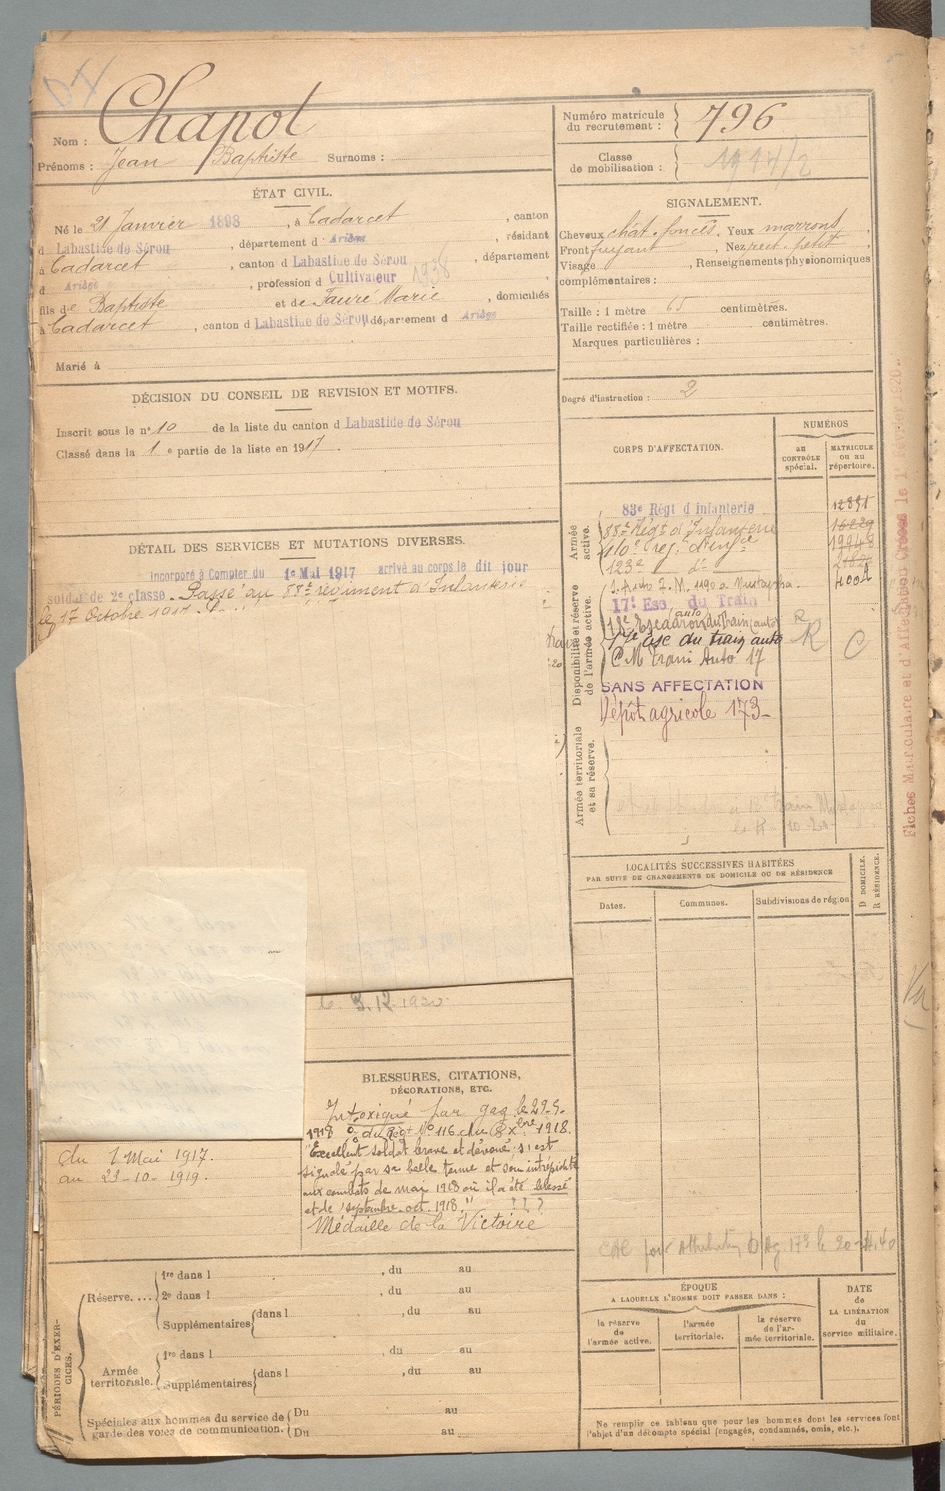 Nom : Chapot
Prénoms : Jean Baptiste Surnoms :
ÉTAT CIVIL.
Né le 21 Janvier 1898, à Cadarcet, canton
d Labastide de Sérou, département d Ariège, résidant
à Cadarcet, canton d Labastide de Sérou, département
d Ariège, profession d Cultivateur 1938
fils de Baptiste et de Fauré Marie, domiciliés
à Cadarcet, canton d Labastide de Sérou département d Ariège
Marié à
DÉCISION DU CONSEIL DE REVISION ET MOTIFS.
Inscrit sous le n° 10 de la liste du canton d Labastide de Sérou
Classé dans la 1 e partie de la liste en 1917.
DÉTAIL DES SERVICES ET MUTATIONS DIVERSES.
Incorporé à Compter du 1e Mai 1917 arrivé au corps le dit jour
soldat de 2e classe. Passé au 88e régiment d'Infanterie
le 17 Octobre 1917.
le 3.12.1920
BLESSURES, CITATIONS,
DÉCORATIONS, ETC.
Intoxiqué par gaz le 29-5-
1918 du Régt No 116 du 1918.
"Excellent soldat brave et dévoué, s'est
signalé par sa belle tenue et son intrépidité
aux combats de mai 1918 où il a été blessé
et de septembre-oct. 1918."
Médaille de la Victoire
du 1 Mai 1917.
au 23-10-1919.
PÉRIODES D'EXERCICES.
Réserve.... 1re dans l , du au
2e dans l , du au
Supplémentaires dans l , du au
Armée territoriale. 1re dans l , du au
Supplémentaires dans l , du au
Spéciales aux hommes du service de garde des voies de communication. Du au
Du au
Numéro matricule du recrutement : 796
Classe de mobilisation : 1917/2
SIGNALEMENT.
Cheveux chât. foncés. Yeux marrons
Front fuyant, Nez rect. petit
Visage , Renseignements physionomiques
complémentaires :
Taille : 1 mètre 65 centimètres.
Taille rectifiée : 1 mètre centimètres.
Marques particulières :
Degré d'instruction : 2
CORPS D'AFFECTATION.
NUMÉROS
au CONTRÔLE spécial.
MATRICULE ou au répertoire.
Armée active.
83e Régt d'Infanterie 12891
88e Régt d'Infanterie
110e rég. d'infie
123e d°
Disponibilité et réserve de l'armée active.
17e Esc. du Train
18e Escadron du Train (auto) R
17e esc du train auto R C
CM Train Auto 17
SANS AFFECTATION
Dépôt agricole 173
Armée territoriale et sa réserve.
LOCALITÉS SUCCESSIVES HABITÉES
PAR SUITE DE CHANGEMENTS DE DOMICILE OU DE RÉSIDENCE
Dates. Communes. Subdivisions de région
D DOMICILE.
R RÉSIDENCE.
ÉPOQUE
A LAQUELLE L'HOMME DOIT PASSER DANS :
la réserve de l'armée active.
l'armée territoriale.
la réserve de l'armée territoriale.
DATE de LA LIBÉRATION du service militaire.
Ne remplir ce tableau que pour les hommes dont les services font
l'objet d'un décompte spécial (engagés, condamnés, omis, etc.).